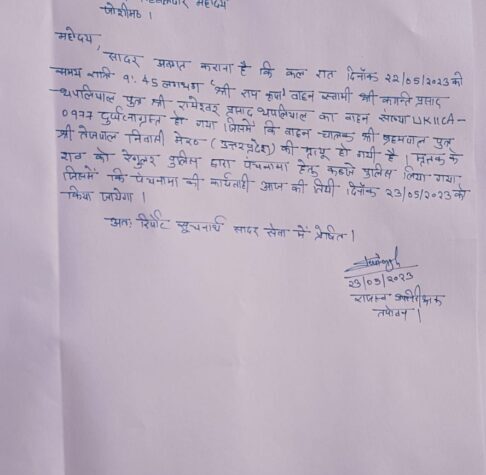 महोदय
जोशीमठ ।
महोदय,
सादर अवगत कराना है कि कल रात दिनाँक 22/05/2023 को
समय रात्रि 9:45 लगभग श्री राम कृपा वाहन स्वामी श्री कान्ति प्रसाद
थपलियाल पुत्र श्री रामेश्वर प्रसाद थपलियाल का वाहन संख्या UK11CA-
0977 दुर्घटनाग्रस्त हो गया जिसमें कि वाहन चालक श्री ब्रहमपाल पुत्र
श्री तेजपाल निवासी मेरठ (उत्तरप्रदेश) की मृत्यू हो गयी है । मृतक के
शव को रेगुलर पुलिस द्वारा पंचनामा हेतु कब्जे पुलिस लिया गया
जिसमें कि पंचनामा की कार्यवाही आज की तिथी दिनाँक 23/05/2023 को
किया जायेगा ।
अतः रिपोर्ट सूचनार्थ सादर सेवा में प्रेषित ।
23/05/2023
राजस्व उपनिरीक्षक
तपोवन ।